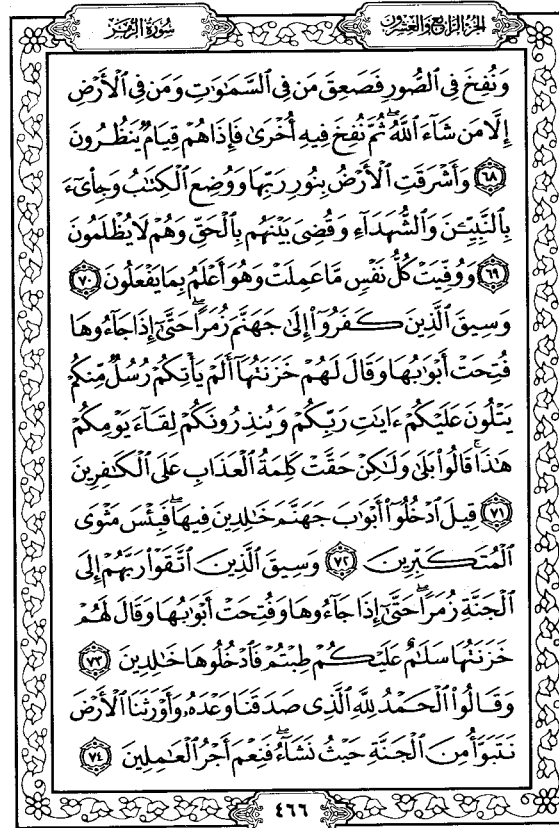 الجزء الرابع والعشرون
سورة الزمر
وَنُفِخَ فِى ٱلصُّورِ فَصَعِقَ مَن فِى ٱلسَّمَٰوَٰتِ وَمَن فِى ٱلْأَرْضِ
إِلَّا مَن شَآءَ ٱللَّهُ ۖ ثُمَّ نُفِخَ فِيهِ أُخْرَىٰ فَإِذَا هُمْ قِيَامٌ يَنظُرُونَ
٦٨ وَأَشْرَقَتِ ٱلْأَرْضُ بِنُورِ رَبِّهَا وَوُضِعَ ٱلْكِتَٰبُ وَجِا۟ىٓءَ
بِٱلنَّبِيِّـۧنَ وَٱلشُّهَدَآءِ وَقُضِىَ بَيْنَهُم بِٱلْحَقِّ وَهُمْ لَا يُظْلَمُونَ
٦٩ وَوُفِّيَتْ كُلُّ نَفْسٍ مَّا عَمِلَتْ وَهُوَ أَعْلَمُ بِمَا يَفْعَلُونَ ٧٠
وَسِيقَ ٱلَّذِينَ كَفَرُوٓا۟ إِلَىٰ جَهَنَّمَ زُمَرًا ۖ حَتَّىٰٓ إِذَا جَآءُوهَا
فُتِحَتْ أَبْوَٰبُهَا وَقَالَ لَهُمْ خَزَنَتُهَآ أَلَمْ يَأْتِكُمْ رُسُلٌ مِّنكُمْ
يَتْلُونَ عَلَيْكُمْ ءَايَٰتِ رَبِّكُمْ وَيُنذِرُونَكُمْ لِقَآءَ يَوْمِكُمْ
هَٰذَا ۚ قَالُوا۟ بَلَىٰ وَلَٰكِنْ حَقَّتْ كَلِمَةُ ٱلْعَذَابِ عَلَى ٱلْكَٰفِرِينَ
٧١ قِيلَ ٱدْخُلُوٓا۟ أَبْوَٰبَ جَهَنَّمَ خَٰلِدِينَ فِيهَا ۖ فَبِئْسَ مَثْوَى
ٱلْمُتَكَبِّرِينَ ٧٢ وَسِيقَ ٱلَّذِينَ ٱتَّقَوْا۟ رَبَّهُمْ إِلَى
ٱلْجَنَّةِ زُمَرًا ۖ حَتَّىٰٓ إِذَا جَآءُوهَا وَفُتِحَتْ أَبْوَٰبُهَا وَقَالَ لَهُمْ
خَزَنَتُهَا سَلَٰمٌ عَلَيْكُمْ طِبْتُمْ فَٱدْخُلُوهَا خَٰلِدِينَ ٧٣
وَقَالُوا۟ ٱلْحَمْدُ لِلَّهِ ٱلَّذِى صَدَقَنَا وَعْدَهُۥ وَأَوْرَثَنَا ٱلْأَرْضَ
نَتَبَوَّأُ مِنَ ٱلْجَنَّةِ حَيْثُ نَشَآءُ ۖ فَنِعْمَ أَجْرُ ٱلْعَٰمِلِينَ ٧٤
٤٦٦